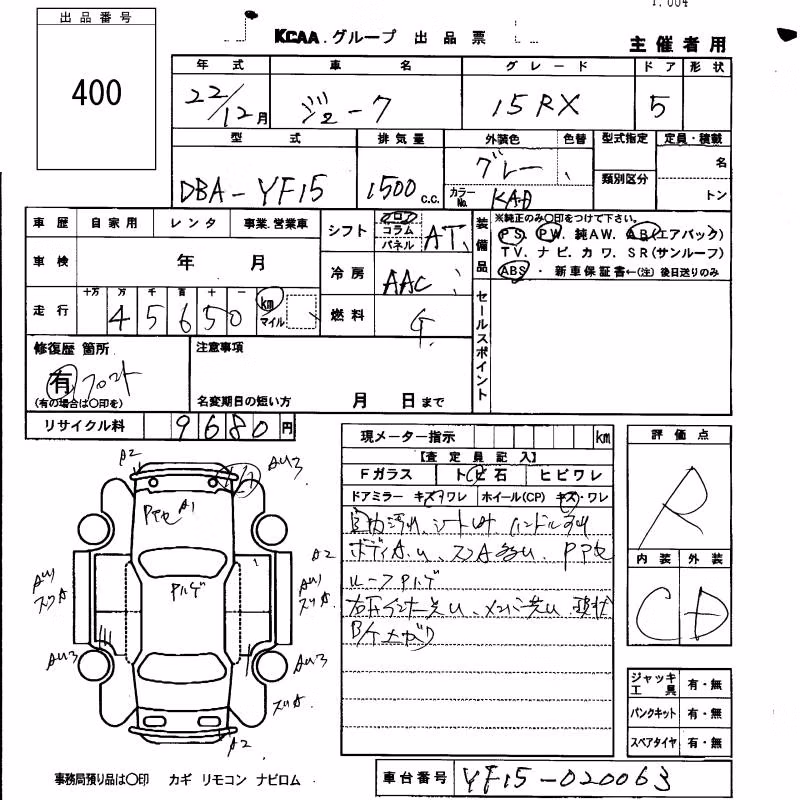 出品番号
400
KCAA.グループ 出品票
主催者用
年式 車名 グレード ドア 形状
22/12月 ジューク 15RX 5
型式 排気量 外装色 色替 型式指定 定員・積載
DBA-YF15 1500c.c. グレー 類別区分 名
カラーNo. KAD トン
車歴 自家用 レンタ 事業.営業車
シフト フロア コラム パネル AT
装備品 ※純正のみ〇印をつけて下さい。
PS. PW. 純AW. AB(エアバック)
TV. ナビ. カワ. SR(サンルーフ)
ABS ・ 新車保証書←(注)後日送りのみ
車検 年 月
冷房 AAC
走行 十万 万 千 百 十 一
45650 km マイル
燃料 G
セールスポイント
修復歴 箇所
有 フロント
(有の場合は〇印を)
注意事項
名変期日の短い方 月 日まで
リサイクル料 9680円
現メーター指示 km
【査定員記入】
Fガラス トビ石 ヒビワレ
ドアミラー キズワレ ホイール(CP) キズ・ワレ
ボディ PPセ
ルーフPルゲ
評価点
R
内装 外装
C D
A2 AU3
PPセ A1
Pルゲ
A2
AU1 AU1
スリA スリA
AU3 AU3
スリA
A2
ジャッキ工具 有・無
パンクキット 有・無
スペアタイヤ 有・無
事務局預り品は〇印 カギ リモコン ナビロム
車台番号 YF15-020063